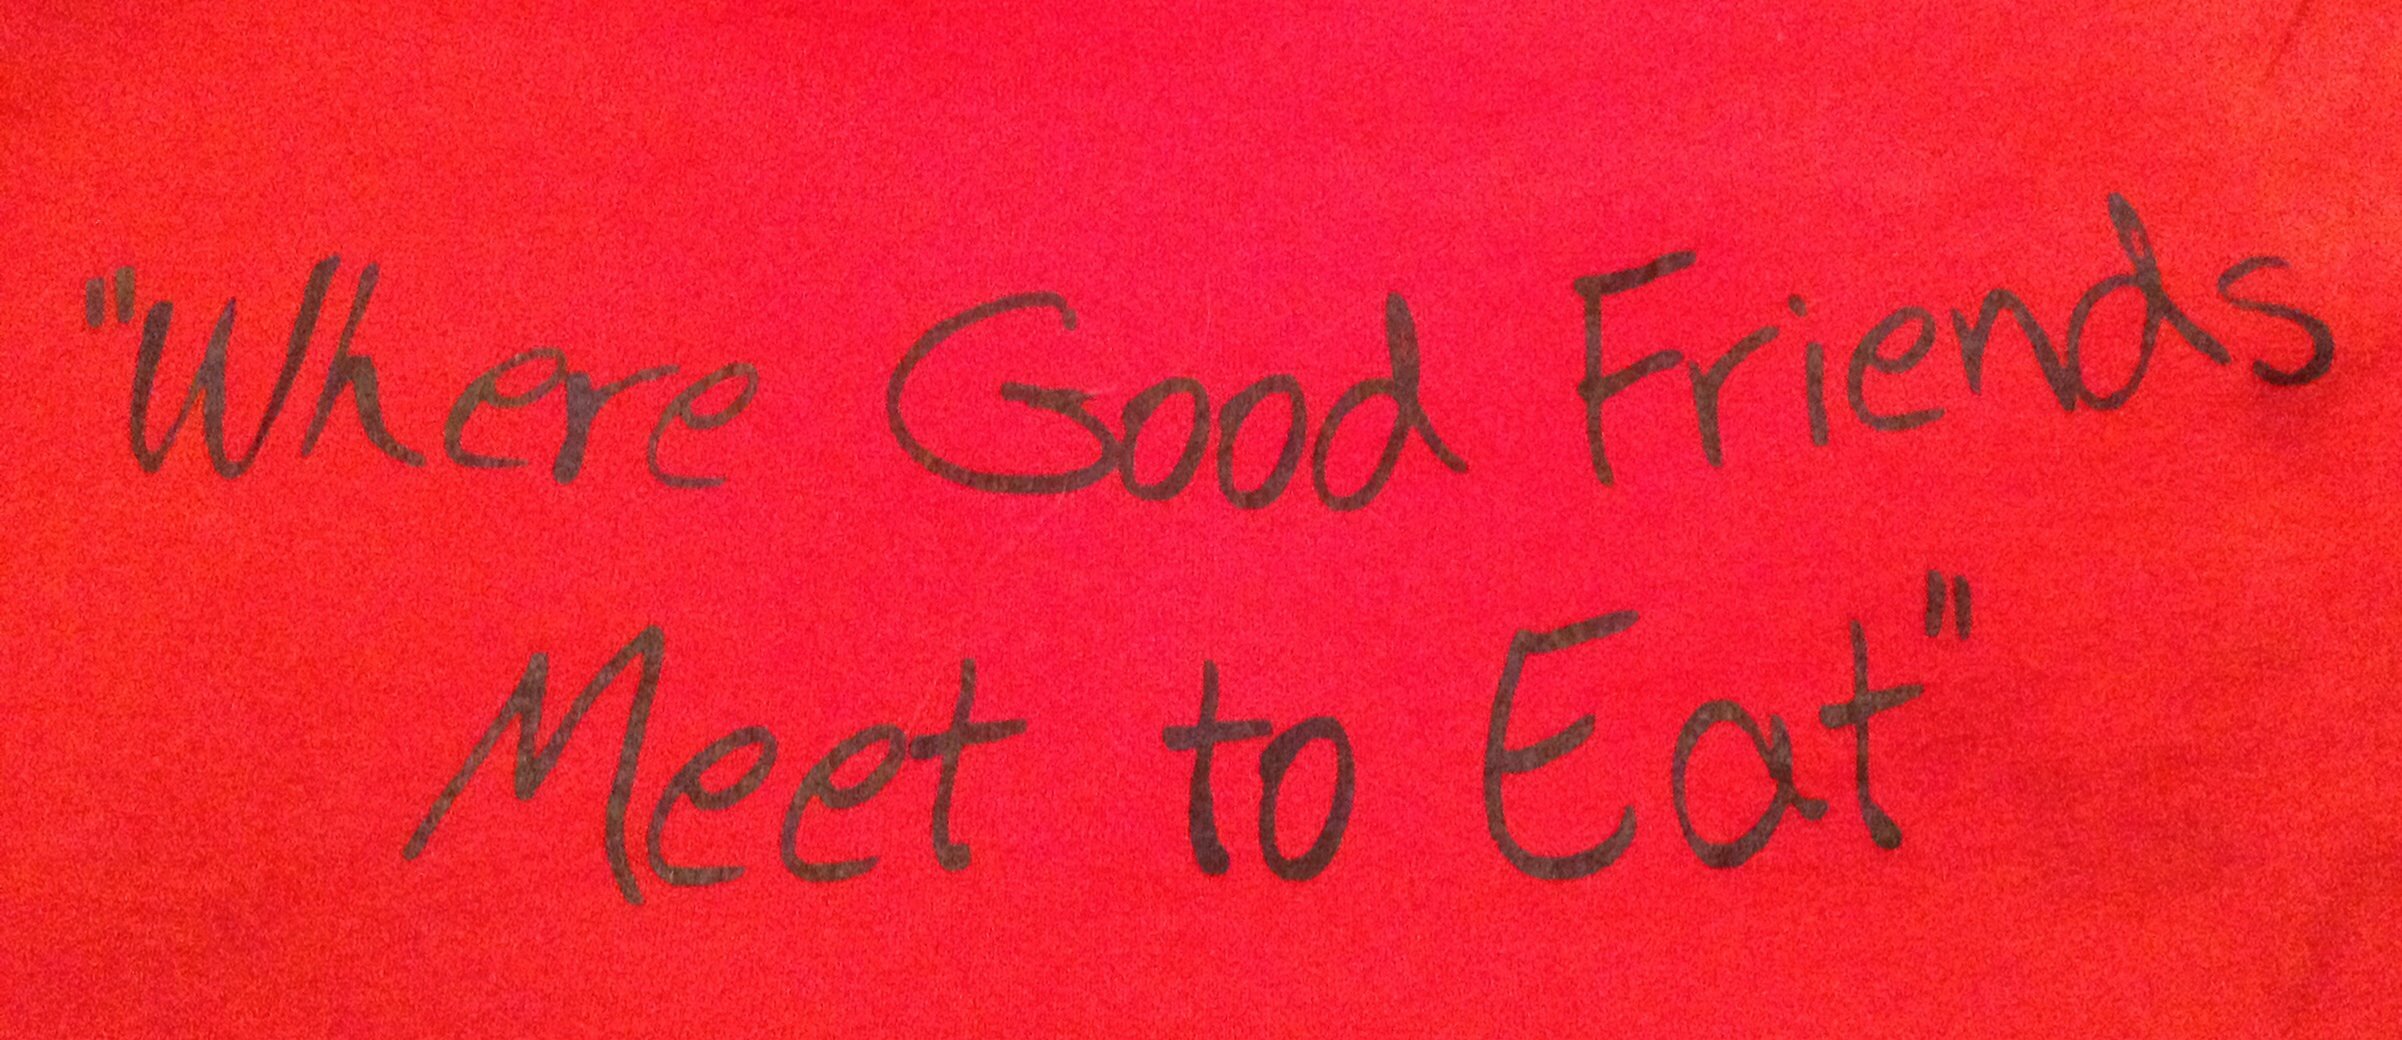 "Where Good Friends
Meet to Eat"